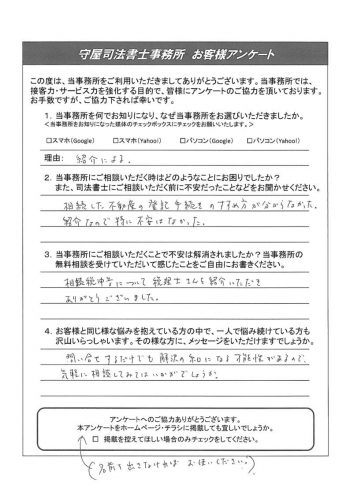 守屋司法書士事務所 お客様アンケート
この度は、当事務所をご利用いただきましてありがとうございます。当事務所では、
接客力・サービス力を強化する目的で、皆様にアンケートのご協力を頂いております。
お手数ですが、ご協力下されば幸いです。
1. 当事務所を何でお知りになり、なぜ当事務所をお選びいただきましたか。
<当事務所をお知りになった媒体のチェックボックスにチェックをお願いいたします。>
□スマホ(Google) □スマホ(Yahoo!) □パソコン(Google) □パソコン(Yahoo!)
理由: 紹介による。
2. 当事務所にご相談いただく時はどのようなことにお困りでしたか?
また、司法書士にご相談いただく前に不安だったことなどをお聞かせください。
相続した不動産の登記手続きのすすめ方がわからなかった。
紹介なので特に不安はなかった。
3. 当事務所にご相談いただくことで不安は解消されましたか?当事務所の
無料相談を受けていただいて感じたことをご自由にお書きください。
相続税申告について税理士さんを紹介いただき
ありがとうございました。
4. お客様と同じ様な悩みを抱えている方の中で、一人で悩み続けている方も
沢山いらっしゃいます。その様な方に、メッセージをいただけますでしょうか。
問い合せするだけでも解決の糸口になる可能性があるので、
気軽に相談してみてはいかがでしょうか。
アンケートへのご協力ありがとうございます。
本アンケートをホームページ・チラシに掲載しても宜しいでしょうか。
□ 掲載を控えてほしい場合のみチェックをしてください。
(名前を出さなければ お使いください。)